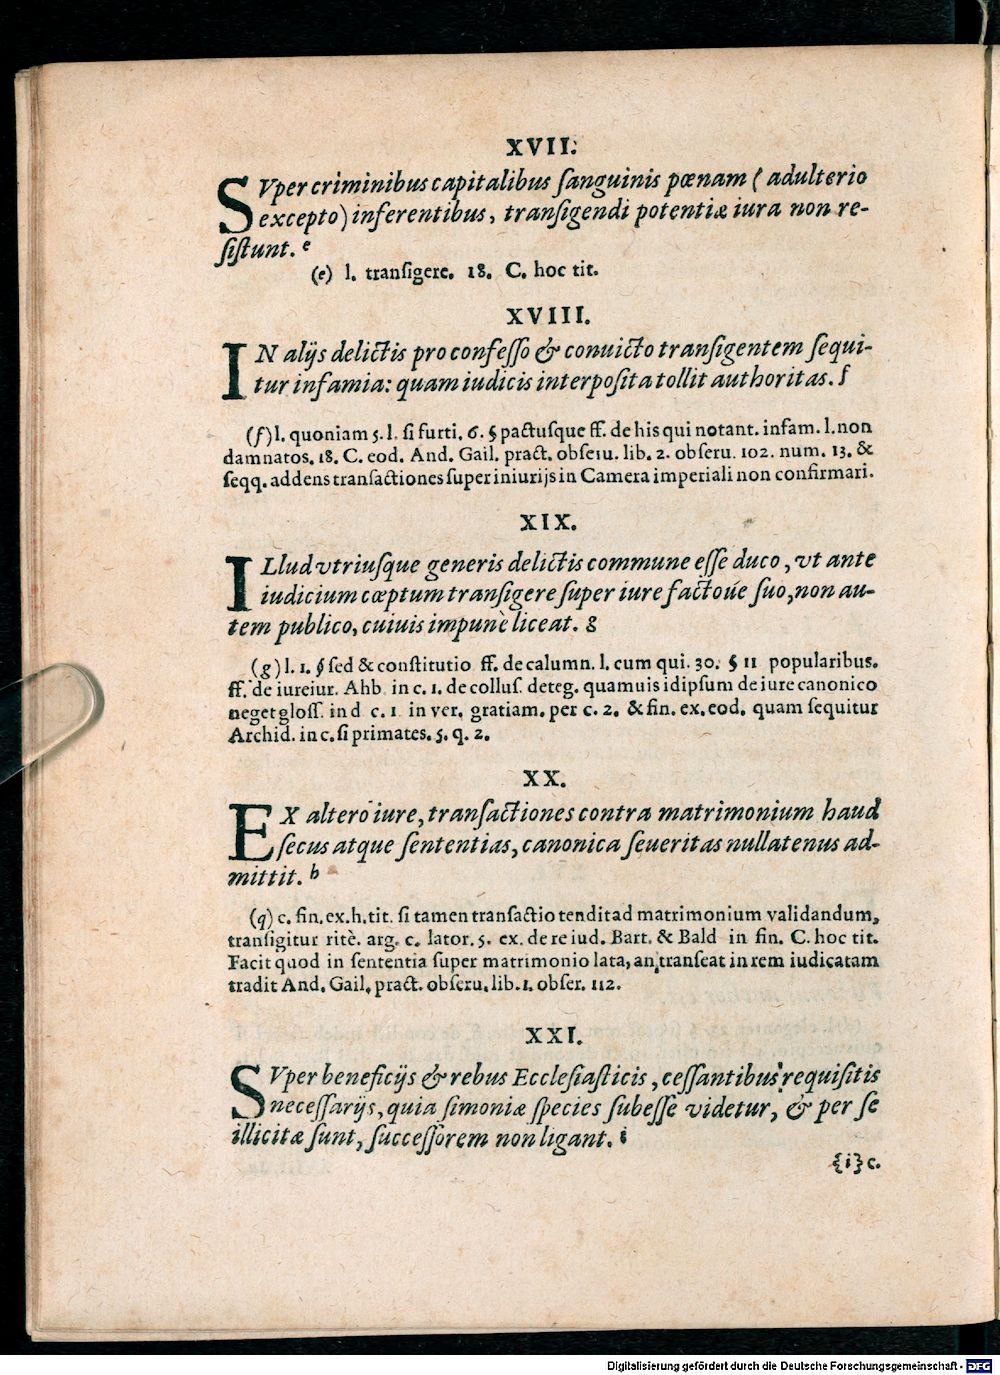 XVII.
SVper criminibus capitalibus ſanguinis pœnam ( adulterio
excepto) inferentibus, tranſigendi potentiæ iura non re-
ſiſtunt. e
(e) l. tranſigere. 18. C. hoc tit.
XVIII.
IN alijs delictis pro confeſſo & conuicto tranſigentem ſequi-
tur infamia: quam iudicis interpoſita tollit authoritas. f
(f) l. quoniam 5. l. ſi furti. 6. § pactuſque ff. de his qui notant. infam. l. non
damnatos. 18. C. eod. And. Gail. pract. obſeru. lib. 2. obſeru. 102. num. 13. &
ſeqq. addens tranſactiones ſuper iniurijs in Camera imperiali non confirmari.
XIX.
ILlud vtriuſque generis delictis commune eſſe duco, vt ante
iudicium cœptum tranſigere ſuper iure factoúe ſuo, non au-
tem publico, cuiuis impunè liceat. g
(g) l. 1. § ſed & conſtitutio ff. de calumn. l. cum qui. 30. § 11 popularibus.
ff. de iureiur. Ahb in c. 1. de colluſ. deteg. quamuis idipſum de iure canonico
neget gloſſ. in d c. 1 in ver. gratiam. per c. 2. & fin. ex. eod. quam ſequitur
Archid. in c. ſi primates. 5. q. 2.
XX.
EX altero iure, tranſactiones contra matrimonium haud
ſecus atque ſententias, canonica ſeueritas nullatenus ad-
mittit. h
(q) c. fin. ex. h. tit. ſi tamen tranſactio tendit ad matrimonium validandum,
tranſigitur ritè. arg. c. lator. 5. ex. de re iud. Bart. & Bald in fin. C. hoc tit.
Facit quod in ſententia ſuper matrimonio lata, an tranſeat in rem iudicatam
tradit And. Gail. pract. obſeru. lib. 1. obſer. 112.
XXI.
SVper beneficijs & rebus Eccleſiaſticis, ceſſantibus requiſitis
neceſſarijs, quia ſimoniæ ſpecies ſubeſſe videtur, & per ſe
illicitæ ſunt, ſucceſſorem non ligant. i
{i} c.
Digitalisierung gefördert durch die Deutsche Forschungsgemeinschaft - DFG